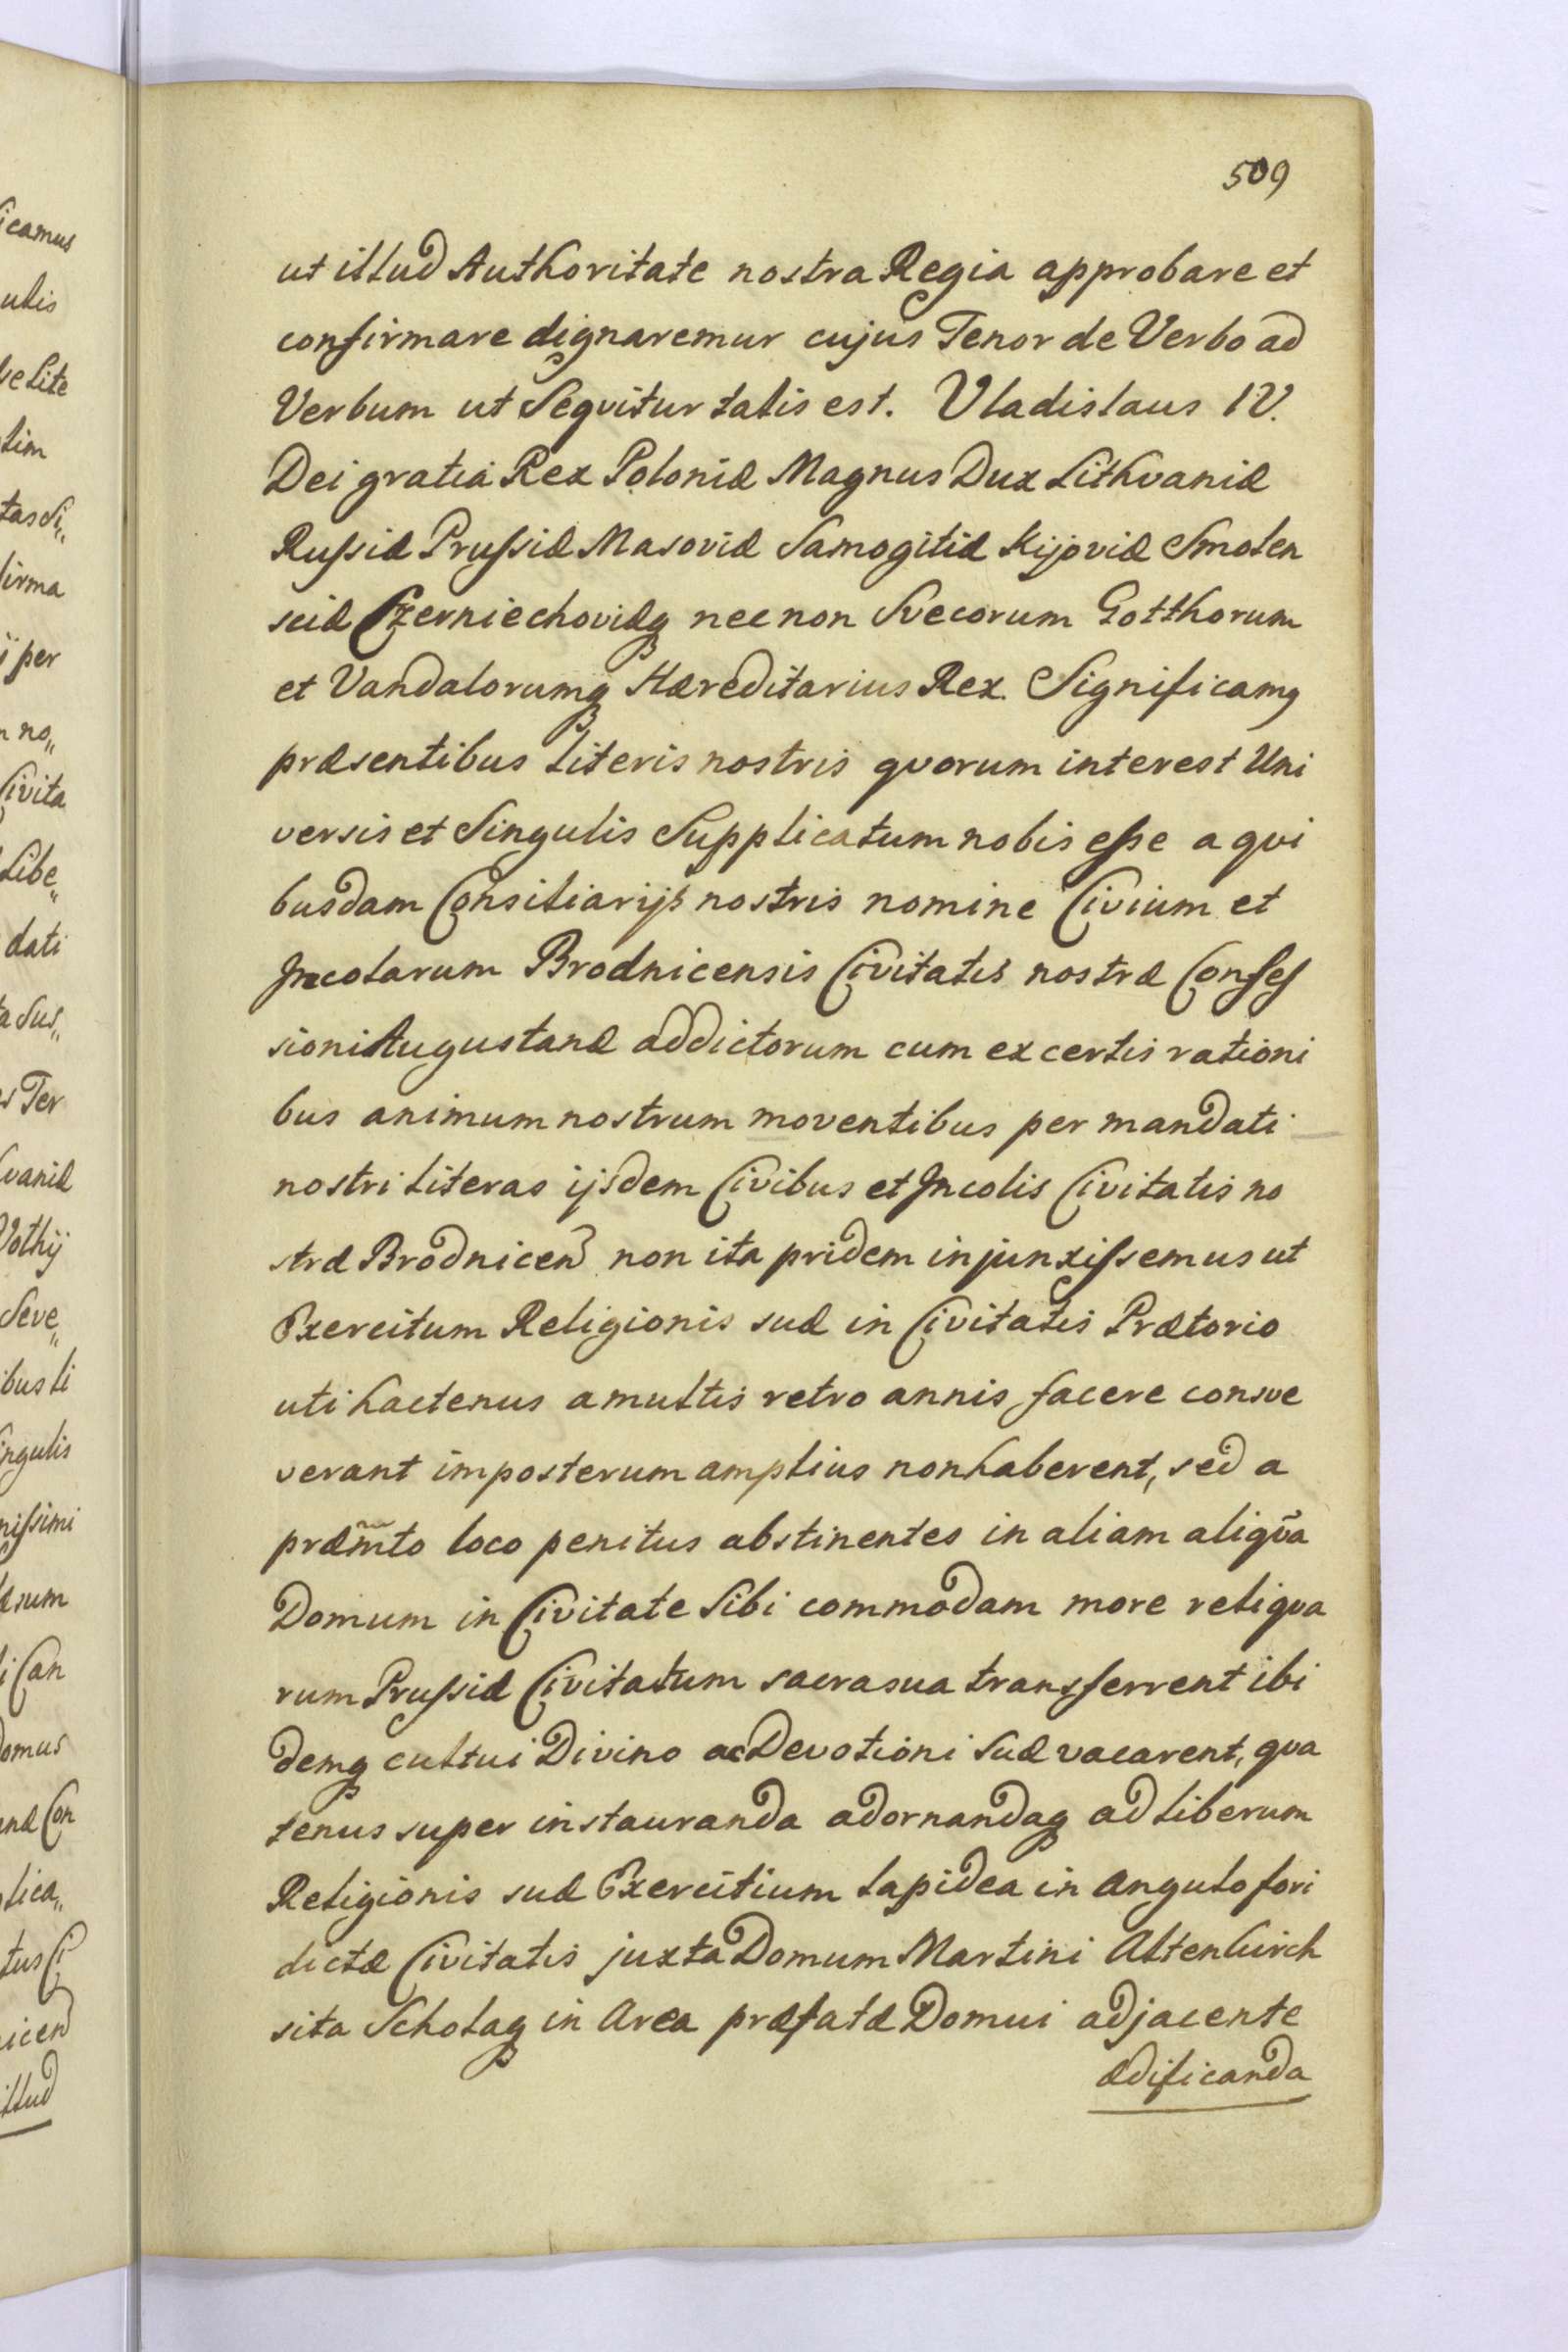 509
ut illud Authoritate nostra Regia approbare et
confirmare dignaremur cujus Tenor de Verbo ad
Verbum ut Seqvitur talis est. Vladislaus IV.
Dei gratia Rex Poloniæ Magnus Dux Lithvaniæ
Russiæ Prussiæ Masoviæ Samogitiæ Kijoviæ Smolen
sciæ Czerniechoviæq nec non Svecorum Gotthorum
et Vandalorumq Hæreditarius Rex. Significamq
præsentibus literis nostris qvorum interest Uni
versis et Singulis Supplicatum nobis esse a qvi
busdam Consiliarijs nostris nomine Civium et
Incolarum Brodnicensis Civitatis nostræ Confes
sioni Augustanæ addictorum cum ex certis rationi
bus animum nostrum moventibus per mandati
nostri literas ijsdem Civibus et Incolis Civitatis no
stræ Brodnicen non ita pridem injunxissemus ut
Exercitum Religionis suæ in Civitatis Prætorio
uti hactenus a multis retro annis facere consve
verant imposterum amplius non haberent, sed a
præm̃to loco penitus abstinentes in aliam aliqṽa
Domum in Civitate Sibi commodam more reliqva
rum Prussiæ Civitatum sacra sua transferrent ibi
demq cultui Divino ac Devotioni Suæ vacarent, qva
tenus super instauranda adornandaq ad liberum
Religionis suæ Exercitium lapidea in angulo fori
dictæ Civitatis juxta Domum Martini Altenkirch
sita Scholaq in Area præfatæ Domui adjacente
ædificanda
icamus
ulis
ve Lite
tas Si,,
firma
ij per
m no,,
Civita
Libe,,
dati
a Sus,,
s Ter
vaniæ
Seve,,
ibus li
ingulis
nissimi
i Can
Domus
anæ Con
plica,,
tus Ci
nicen
illud